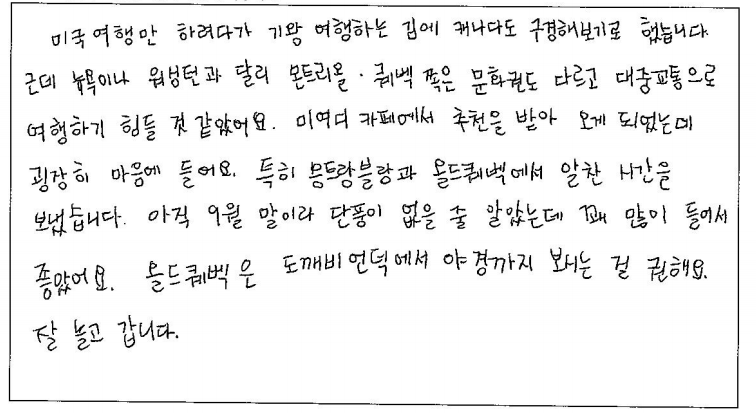 미국 여행만 하려다가 기왕 여행하는 김에 캐나다도 구경해보기로 했습니다.
근데 뉴욕이나 워싱턴과 달리 몬트리올·퀘벡 쪽은 문화권도 다르고 대중교통으로
여행하기 힘들 것 같았어요. 미여디 카페에서 추천을 받아 오게 되었는데
굉장히 마음에 들어요. 특히 몽트랑블랑과 올드퀘벡에서 알찬 시간을
보냈습니다. 아직 9월 말이라 단풍이 없을 줄 알았는데 꽤 많이 들어서
좋았어요. 올드퀘벡은 도깨비언덕에서 야경까지 보시는 걸 권해요.
잘 놀고 갑니다.